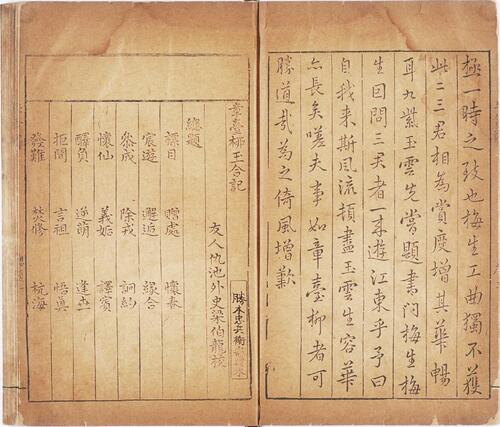 極一時之致也梅生工曲獨不獲
此二三君相為賞度增其華暢
耳九紫玉雲先嘗題書問梅生梅
生因問三君者一來遊江東乎予曰
自我來斯風流頓盡玉雲生容華
亦長矣嗟夫事如章臺柳者可
勝道哉為之倚風增歎
章臺柳玉合記
友人仇池外史梁伯龍校
勝本忠兵衛
總題
標目 贈處 懷春
宸遊 邂逅 緣合
參成 除戎 詗約
懷仙 義姤 譯賓
醳負
拒間 言祖 悟真
發難 焚修 杭海